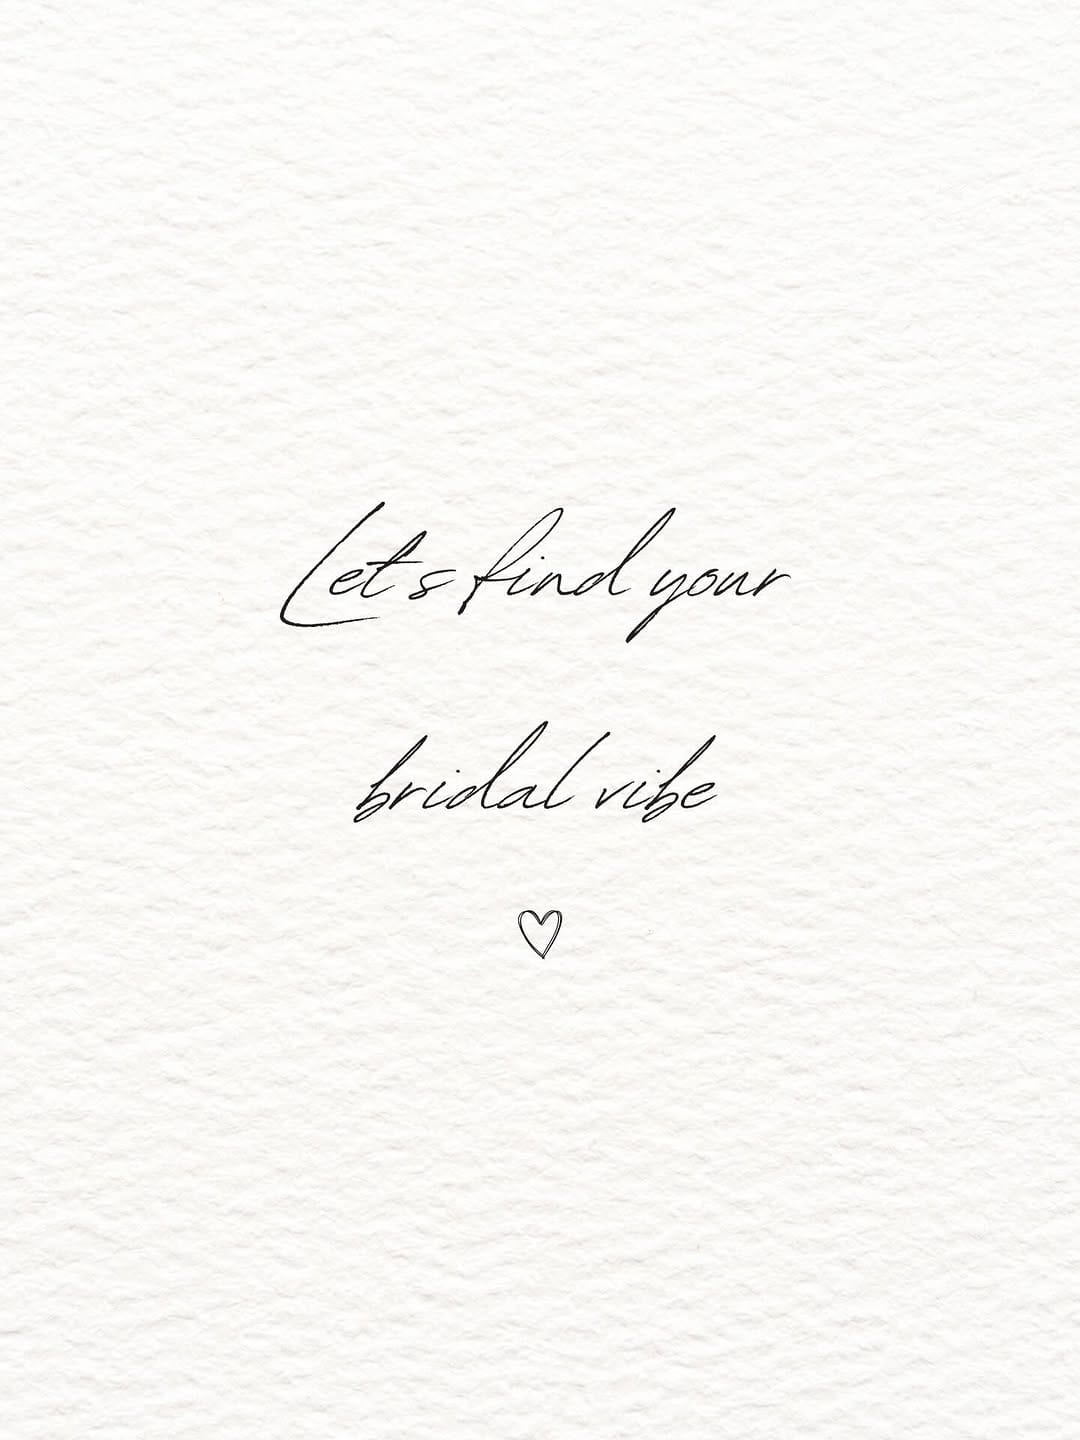 Let's find your
bridal vibe